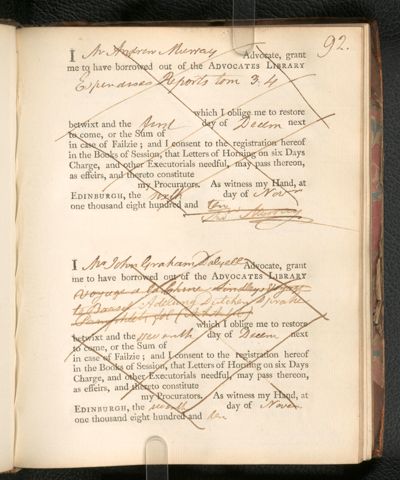 92.
I Mr Andrew Murray Advocate, grant
me to have borrowed out of the ADVOCATES LIBRARY
Espinasses Reports tom 3. 4
which I oblige me to restore
betwixt and the day of Decem next
to come, or the Sum of
in case of Failzie; and I consent to the registration hereof
in the Books of Session, that Letters of Horning on six Days
Charge, and other Executorials needful, may pass thereon,
as effeirs, and thereto constitute
my Procurators. As witness my Hand, at
EDINBURGH, the sixth day of Novr
one thousand eight hundred and ten
I Mr John Graham Dalyell Advocate, grant
me to have borrowed out of the ADVOCATES LIBRARY
Voyages
Adelung
which I oblige me to restore
betwixt and the seventh day of Decem next
to come, or the Sum of
in case of Failzie; and I consent to the registration hereof
in the Books of Session, that Letters of Horning on six Days
Charge, and other Executorials needful, may pass thereon,
as effeirs, and thereto constitute
my Procurators. As witness my Hand, at
EDINBURGH, the seventh day of Novem
one thousand eight hundred and ten